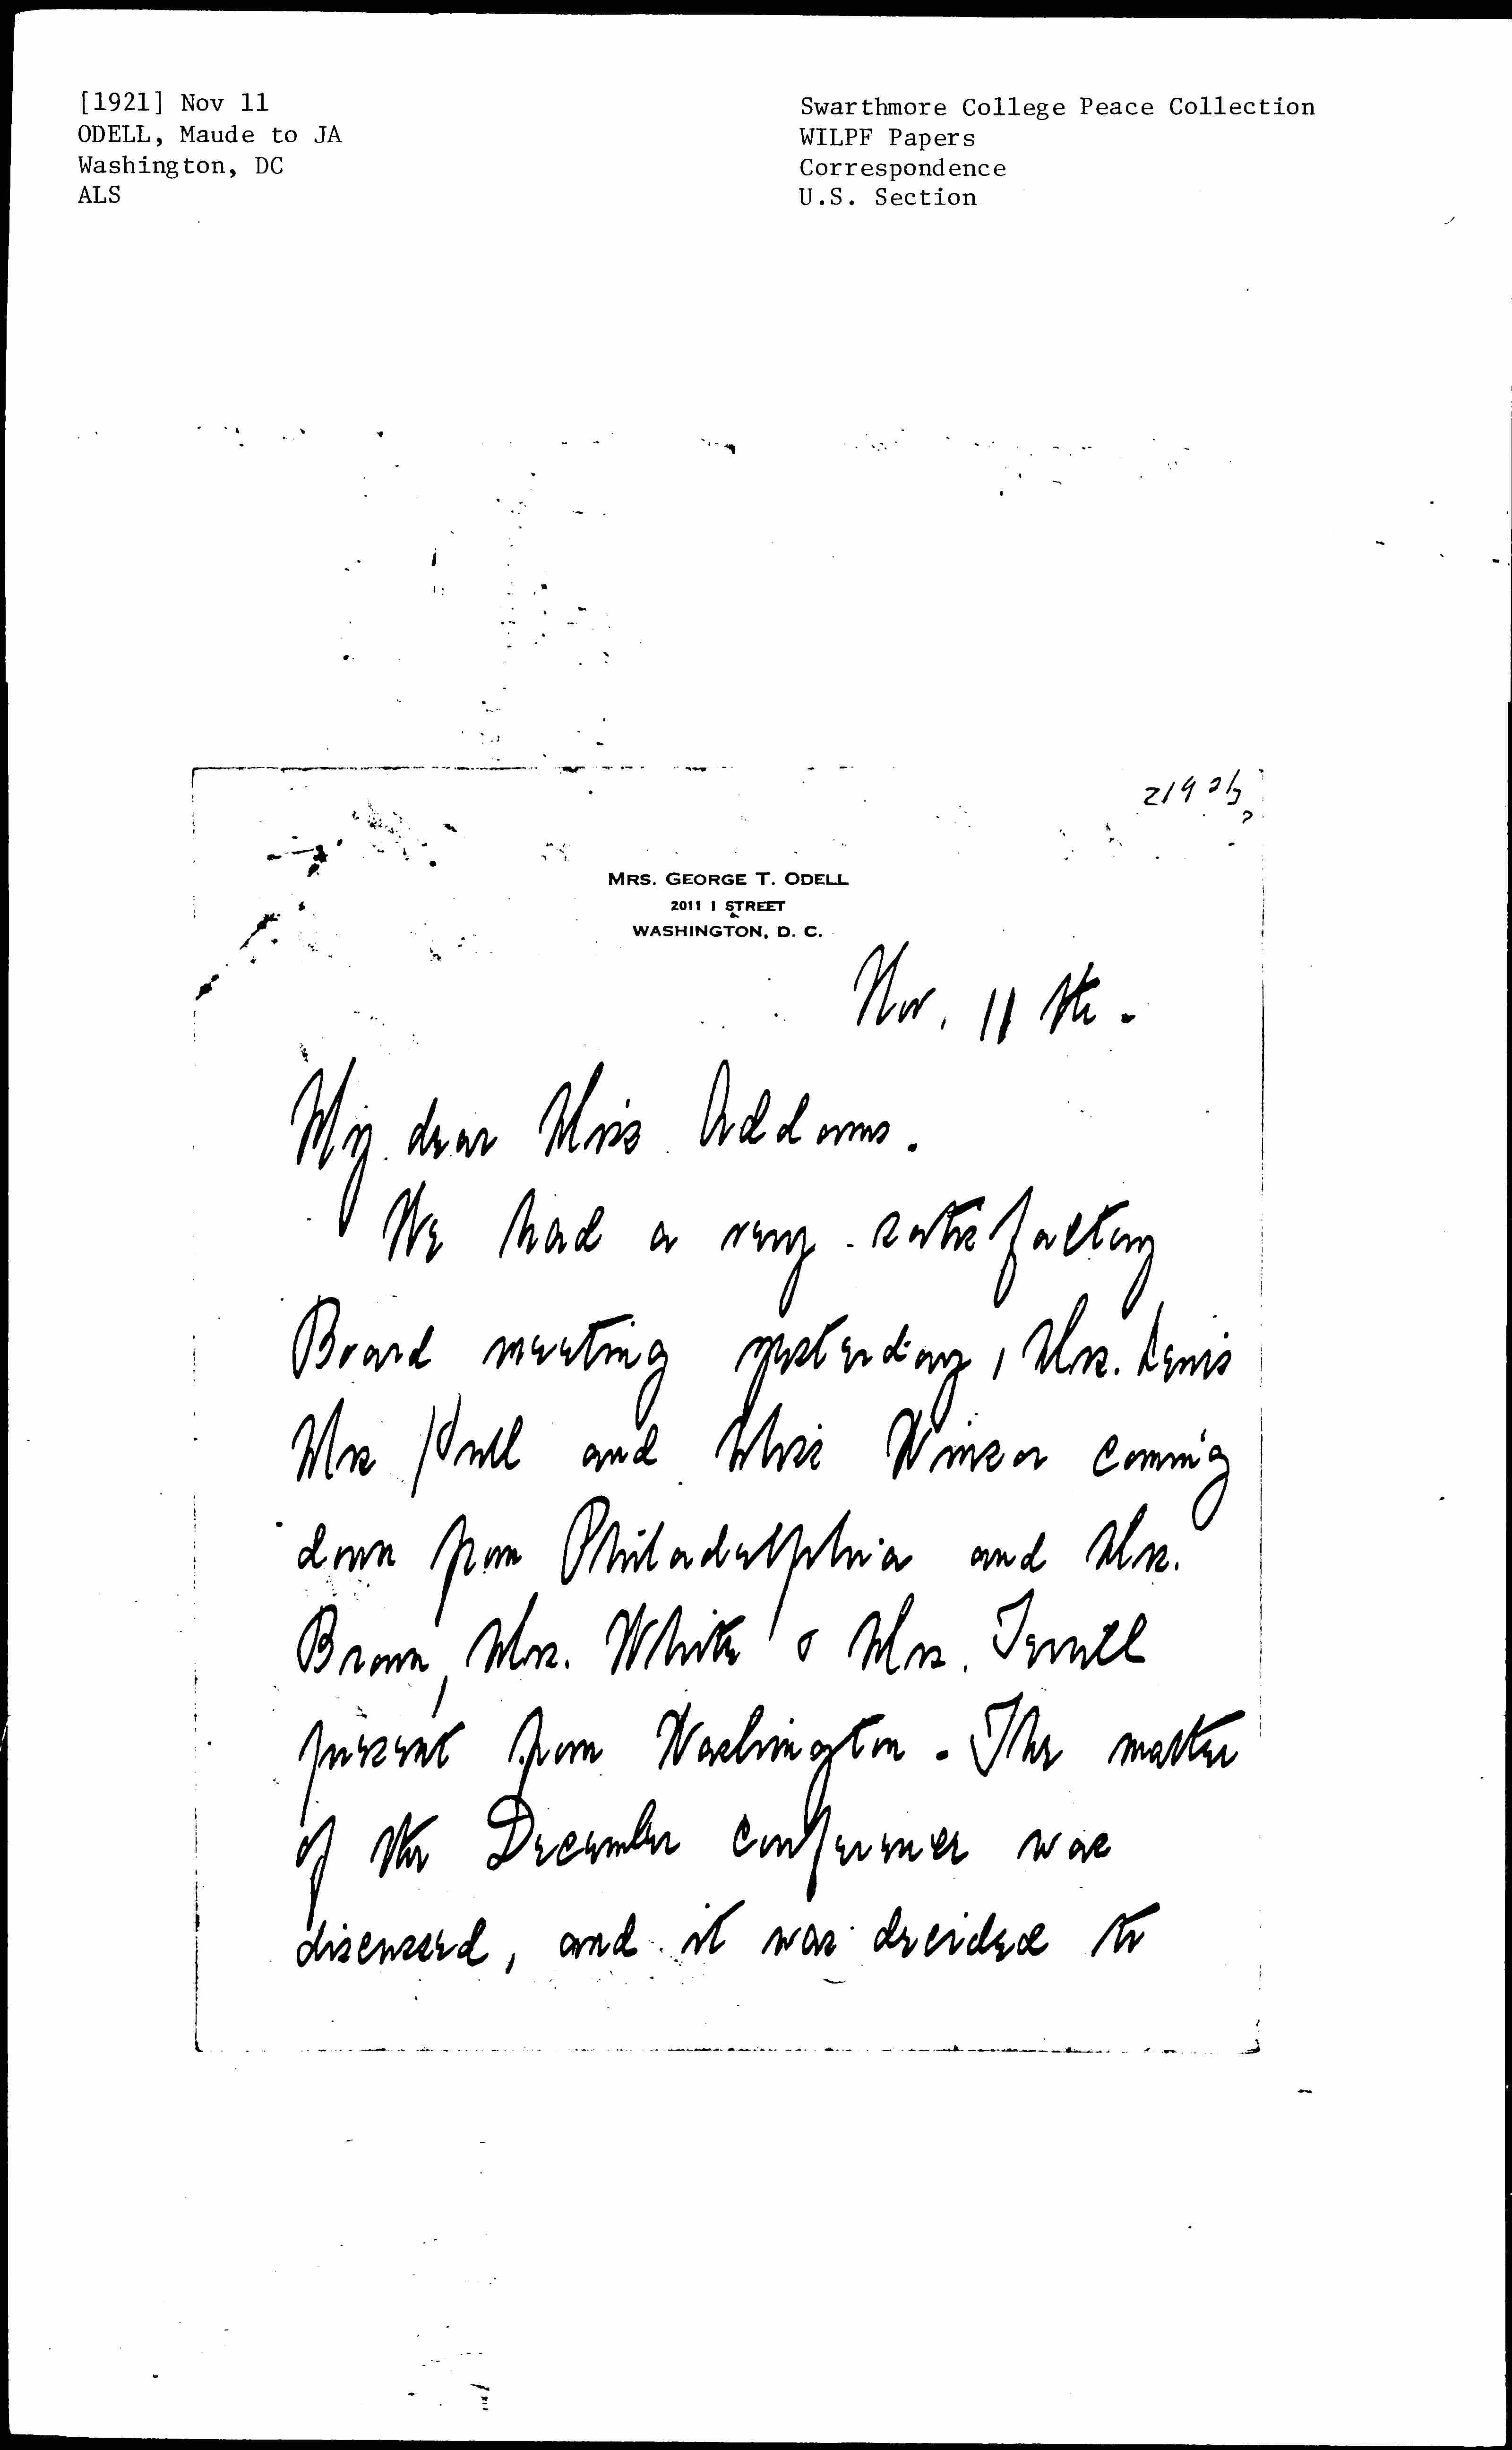 [1921] Nov 11
ODELL, Maude to JA
Washington, DC
ALS
Swarthmore College Peace Collection
WILPF Papers
Correspondence
U.S. Section
MRS. GEORGE T. ODELL
2011 I STREET
WASHINGTON, D. C.
Nov. 11th.
My dear Miss Addams.
We had a very satisfactory
Board meeting yesterday, Mrs. Lewis
Mrs Hull and Miss Winsor coming
down from Philadelphia and Mrs.
Brown, Mrs. White & Mrs. Terrell
present from Washington. The matter
of the December conference was
discussed, and it was decided to